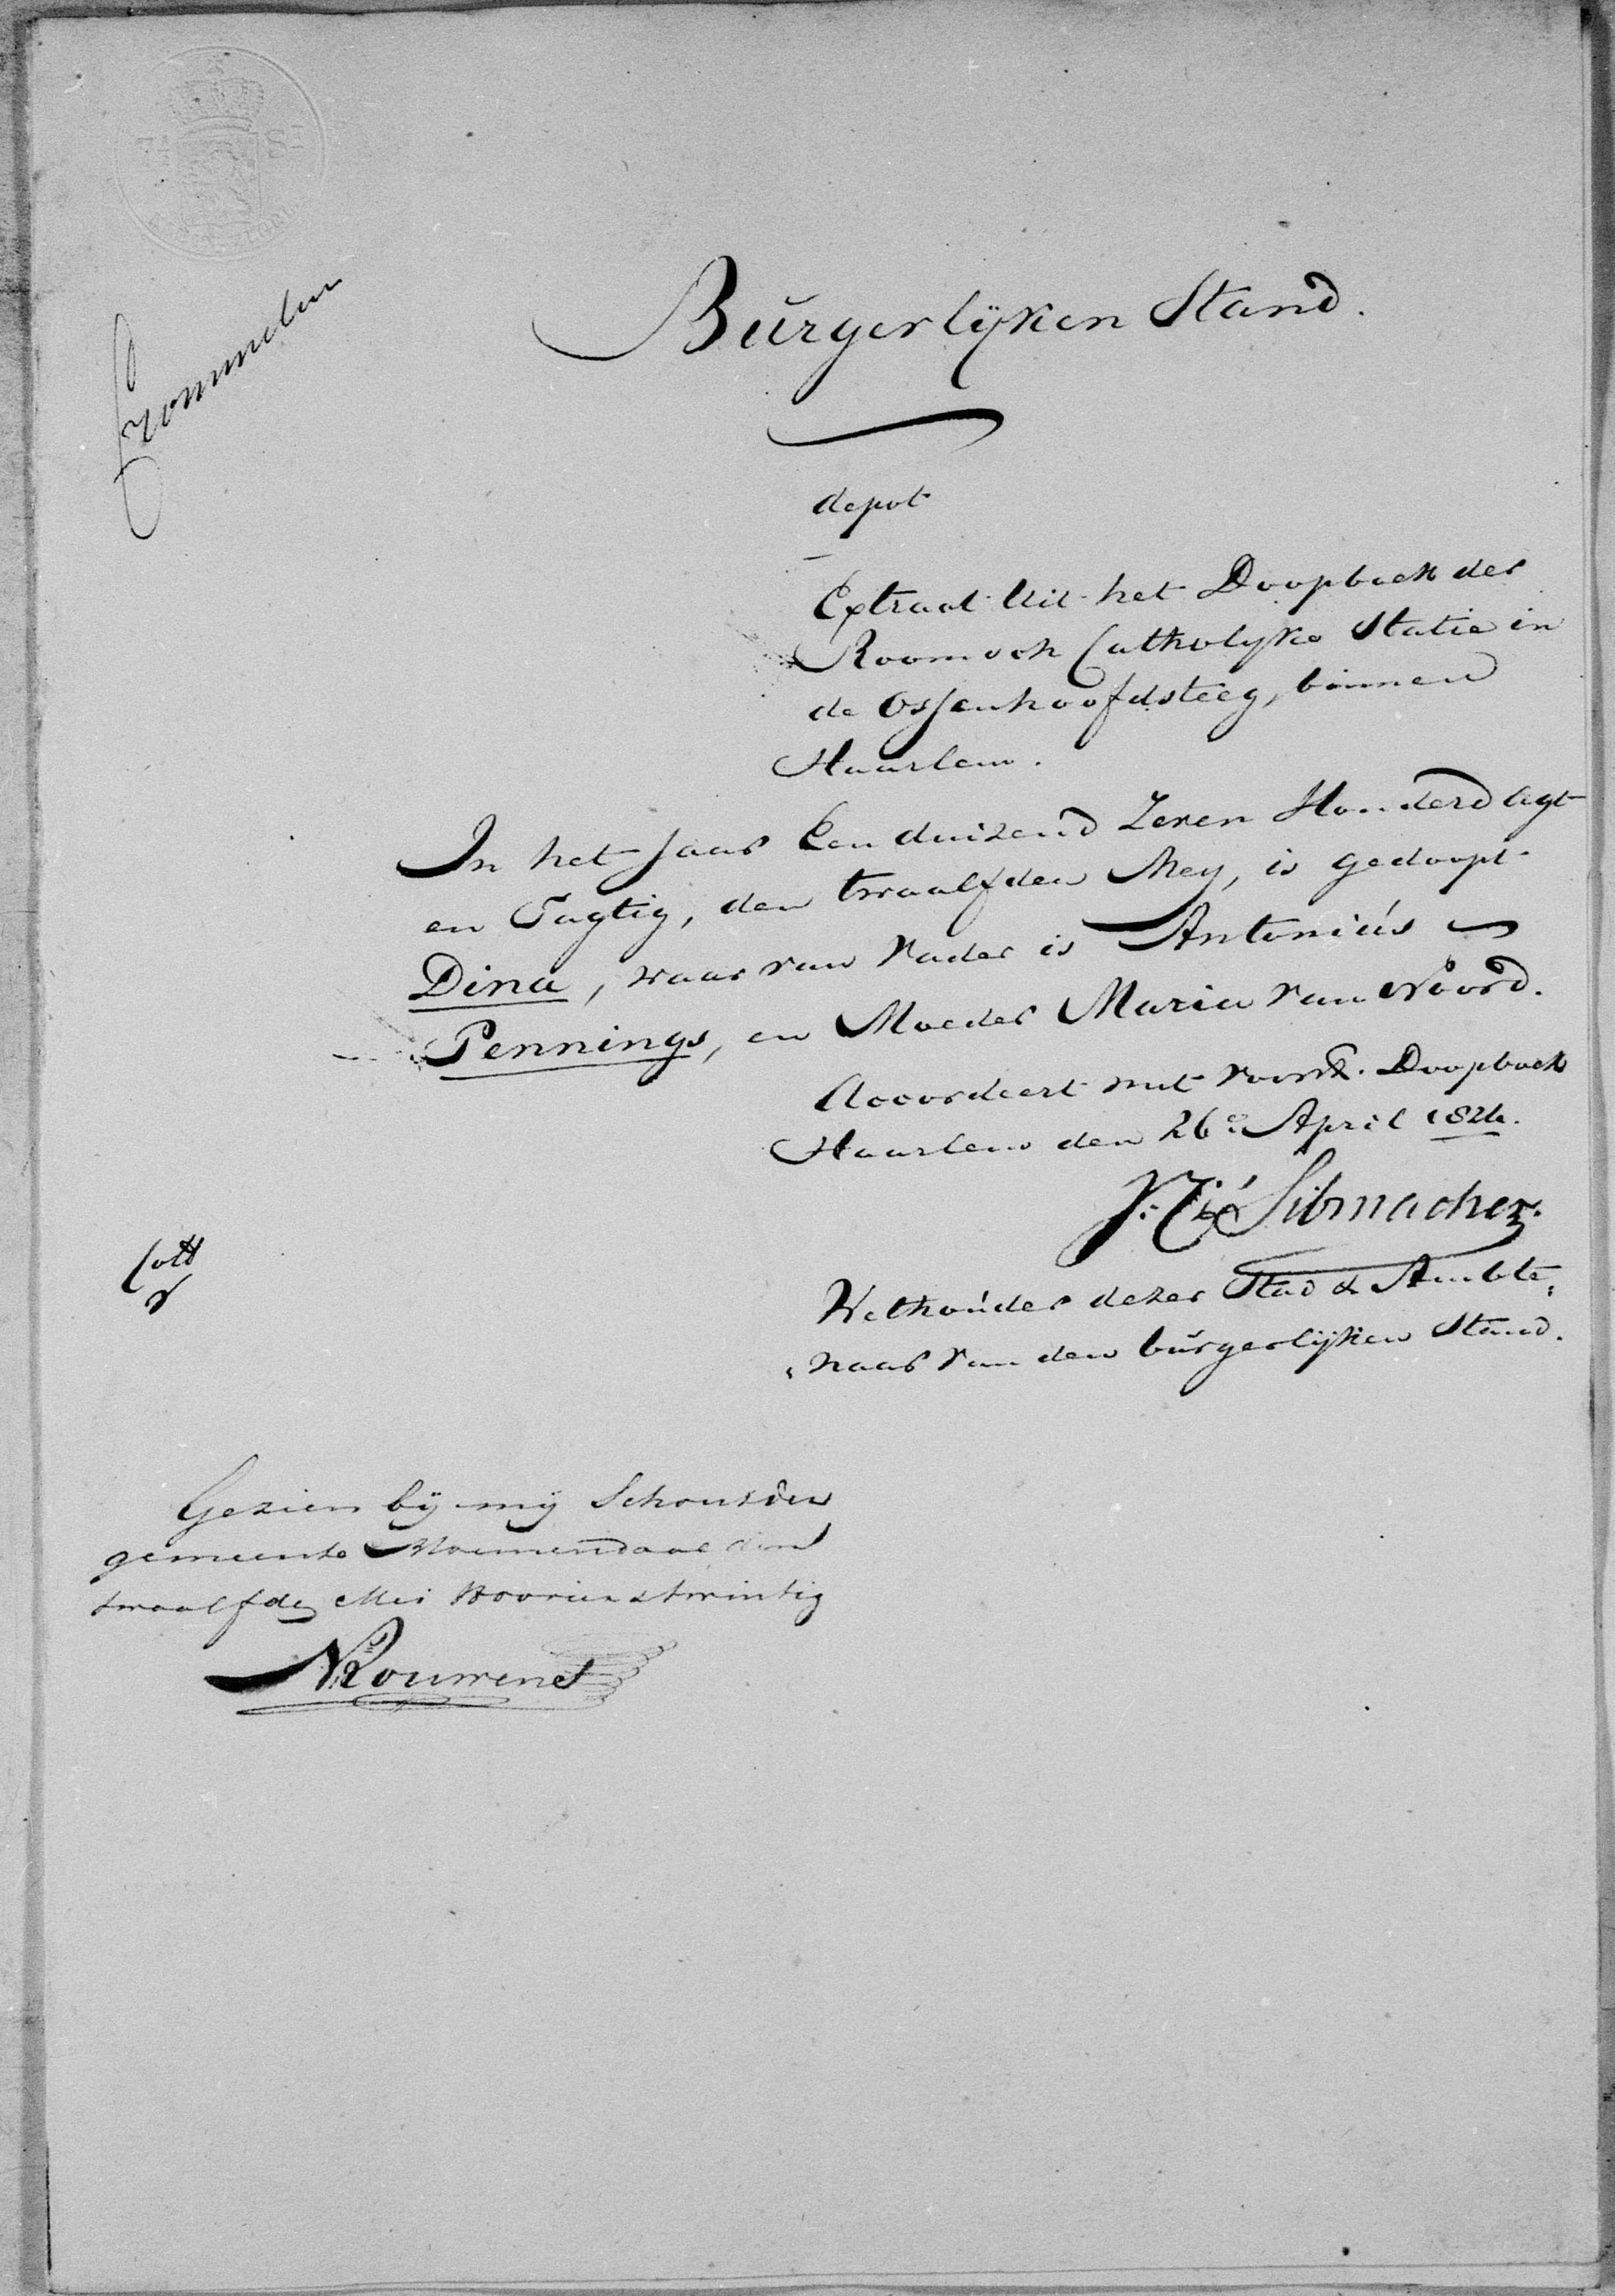 Burgerlijken Stand.
depot
Extract Uit het Doopboek der
Roomsch Catholyke Statie in
de Ossenhoofdsteeg, binnen
Haarlem.
In het Jaar Een duizend Zeven Honderd Agt
en Tagtig, den twaalfden Mey, is gedoopt
Dina, waar van Vader is Antoniús
Pennings, en Moeder Maria van Noord.
Accordeert met voorsz. Doopboek
Haarlem den 26e April 1824.
Sibmacher.
Wethoúder dezer Stad & Ambte„
„naar van den búrgerlijken Stand.
Coll
Gezien bij mij Schout der
gemeente Bloemendaal den
twaalfde Mei